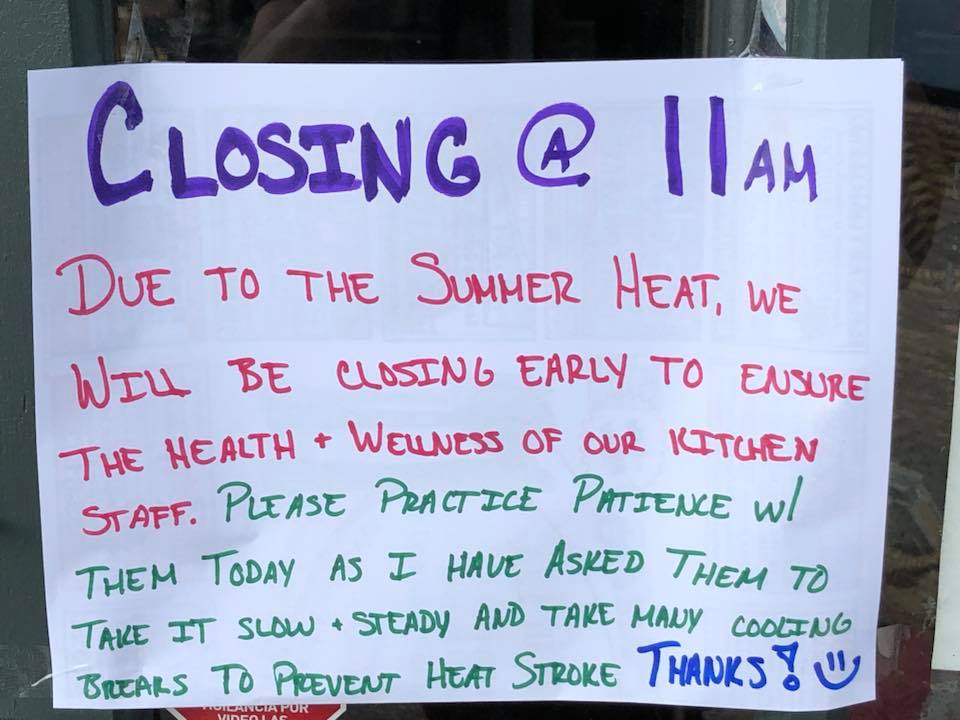 CLOSING @ 11AM
DUE TO THE SUMMER HEAT, WE
WILL BE CLOSING EARLY TO ENSURE
THE HEALTH + WELLNESS OF OUR KITCHEN
STAFF. PLEASE PRACTICE PATIENCE W/
THEM TODAY AS I HAVE ASKED THEM TO
TAKE IT SLOW + STEADY AND TAKE MANY COOLING
BREAKS TO PREVENT HEAT STROKE THANKS!
VIGILANCIA POR
VIDEO LAS